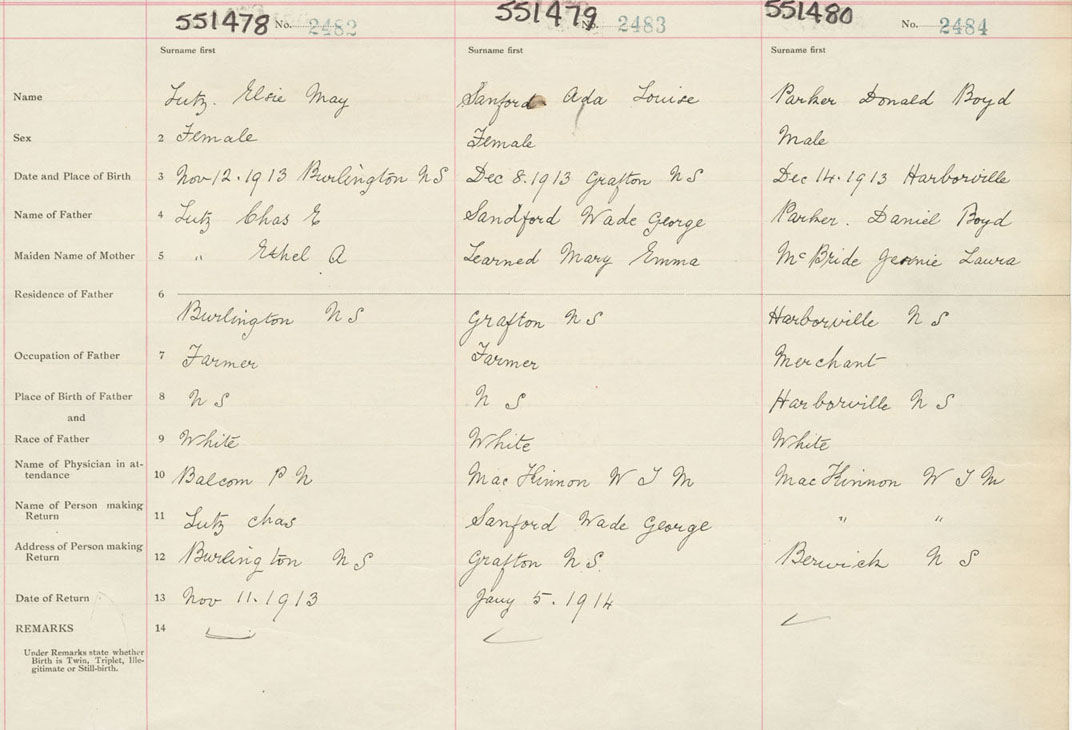 551478 No. 2482 551479 No. 2483 551480 No. 2484
Surname first Surname first Surname first
Name Lutz. Elsie May Sanford Ada Louise Parker Donald Boyd
Sex 2 Female Female Male
Date and Place of Birth 3 Nov 12. 1913 Burlington N S Dec 8. 1913 Grafton N S Dec 14. 1913 Harborville
Name of Father 4 Lutz Chas E Sandford Wade George Parker. Daniel Boyd
Maiden Name of Mother 5 " Ethel A Learned Mary Emma McBride Jennie Laura
Residence of Father 6
Burlington N S Grafton N S Harborville N S
Occupation of Father 7 Farmer Farmer Merchant
Place of Birth of Father 8 N S N S Harborville N S
and
Race of Father 9 White White White
Name of Physician in at-
tendance 10 Balcom P N MacKinnon W T M MacKinnon W T M
Name of Person making
Return 11 Lutz Chas Sanford Wade George " "
Address of Person making
Return 12 Burlington N S Grafton N S. Berwick N S
Date of Return 13 Nov 11. 1913 Jany 5. 1914
REMARKS 14
Under Remarks state whether
Birth is Twin, Triplet, Ille-
gitimate or Still-birth.